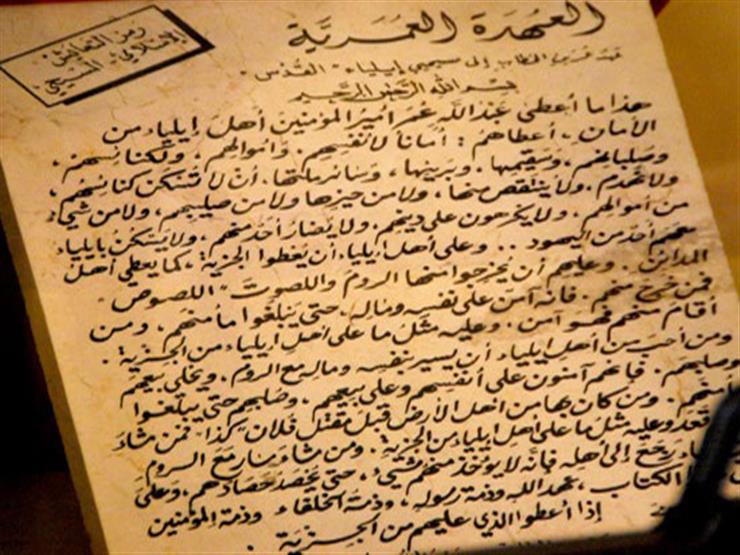 رمز التعايش
الإسلامي المسيحي
العهدة العمرية
من عمر بن الخطاب إلى مسيحيي إيلياء "القدس"
بسم الله الرحمن الرحيم
هذا ما أعطى عبد الله عمر أمير المؤمنين أهل إيلياء من
الأمان، أعطاهم: أمانا لأنفسهم. وأموالهم، ولكنائسهم،
وصلبانهم، وسقيمها، وبريئها، وسائر ملتها. أن لا تسكن كنائسهم،
ولا تهدم، ولا ينتقص منها، ولا من حيزها ولا من صليبهم، ولا من شيء
من أموالهم. ولا يكرهون على دينهم. ولا يضار أحد منهم، ولا يسكن بإيلياء
معهم أحد من اليهود .. وعلى أهل إيلياء أن يعطوا الجزية، كما يعطي أهل
المدائن. وعليهم أن يخرجوا منها الروم واللصوت "اللصوص"
فمن خرج منهم. فإنه آمن على نفسه وماله، حتى يبلغوا مأمنهم، ومن
أقام منهم فهو آمن. وعليه مثل ما على أهل إيلياء من الجزية.
ومن أحب من أهل إيلياء أن يسير بنفسه وماله مع الروم. ويخلي بيعهم
وصلبهم. فإنهم آمنون على أنفسهم وعلى بيعهم، وصلبهم حتى يبلغوا
مأمنهم. ومن كان بها من أهل الأرض قبل مقتل فلان "كذا" فمن شاء
قعد وعليه مثل ما على أهل إيلياء من الجزية. ومن شاء سار مع الروم
رجع إلى أهله فإنه لا يؤخذ منهم شيء، حتى يحصد حصادهم، وعلى
الكتاب، عهد الله وذمة رسوله، وذمة الخلفاء وذمة المؤمنين
إذا أعطوا الذي عليهم من الجزية.